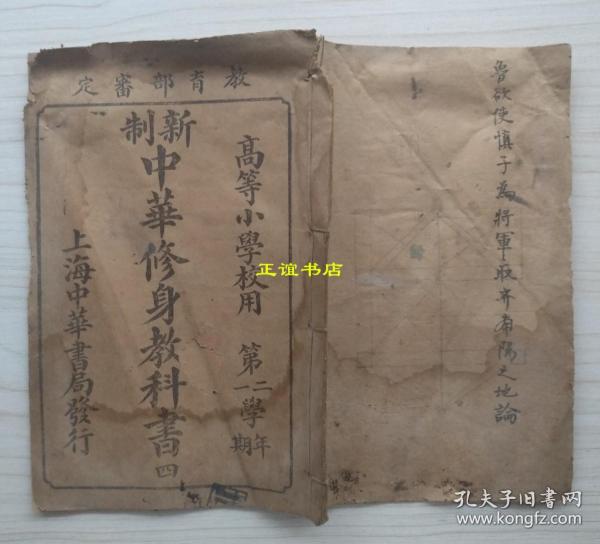 教育部審定
高等小學校用 第二學年一學期
新制中華修身教科書 四
上海中華書局發行
魯欲使慎子為將軍取齊南陽之地論
正谊书店
孔夫子旧书网
www.kongfz.com